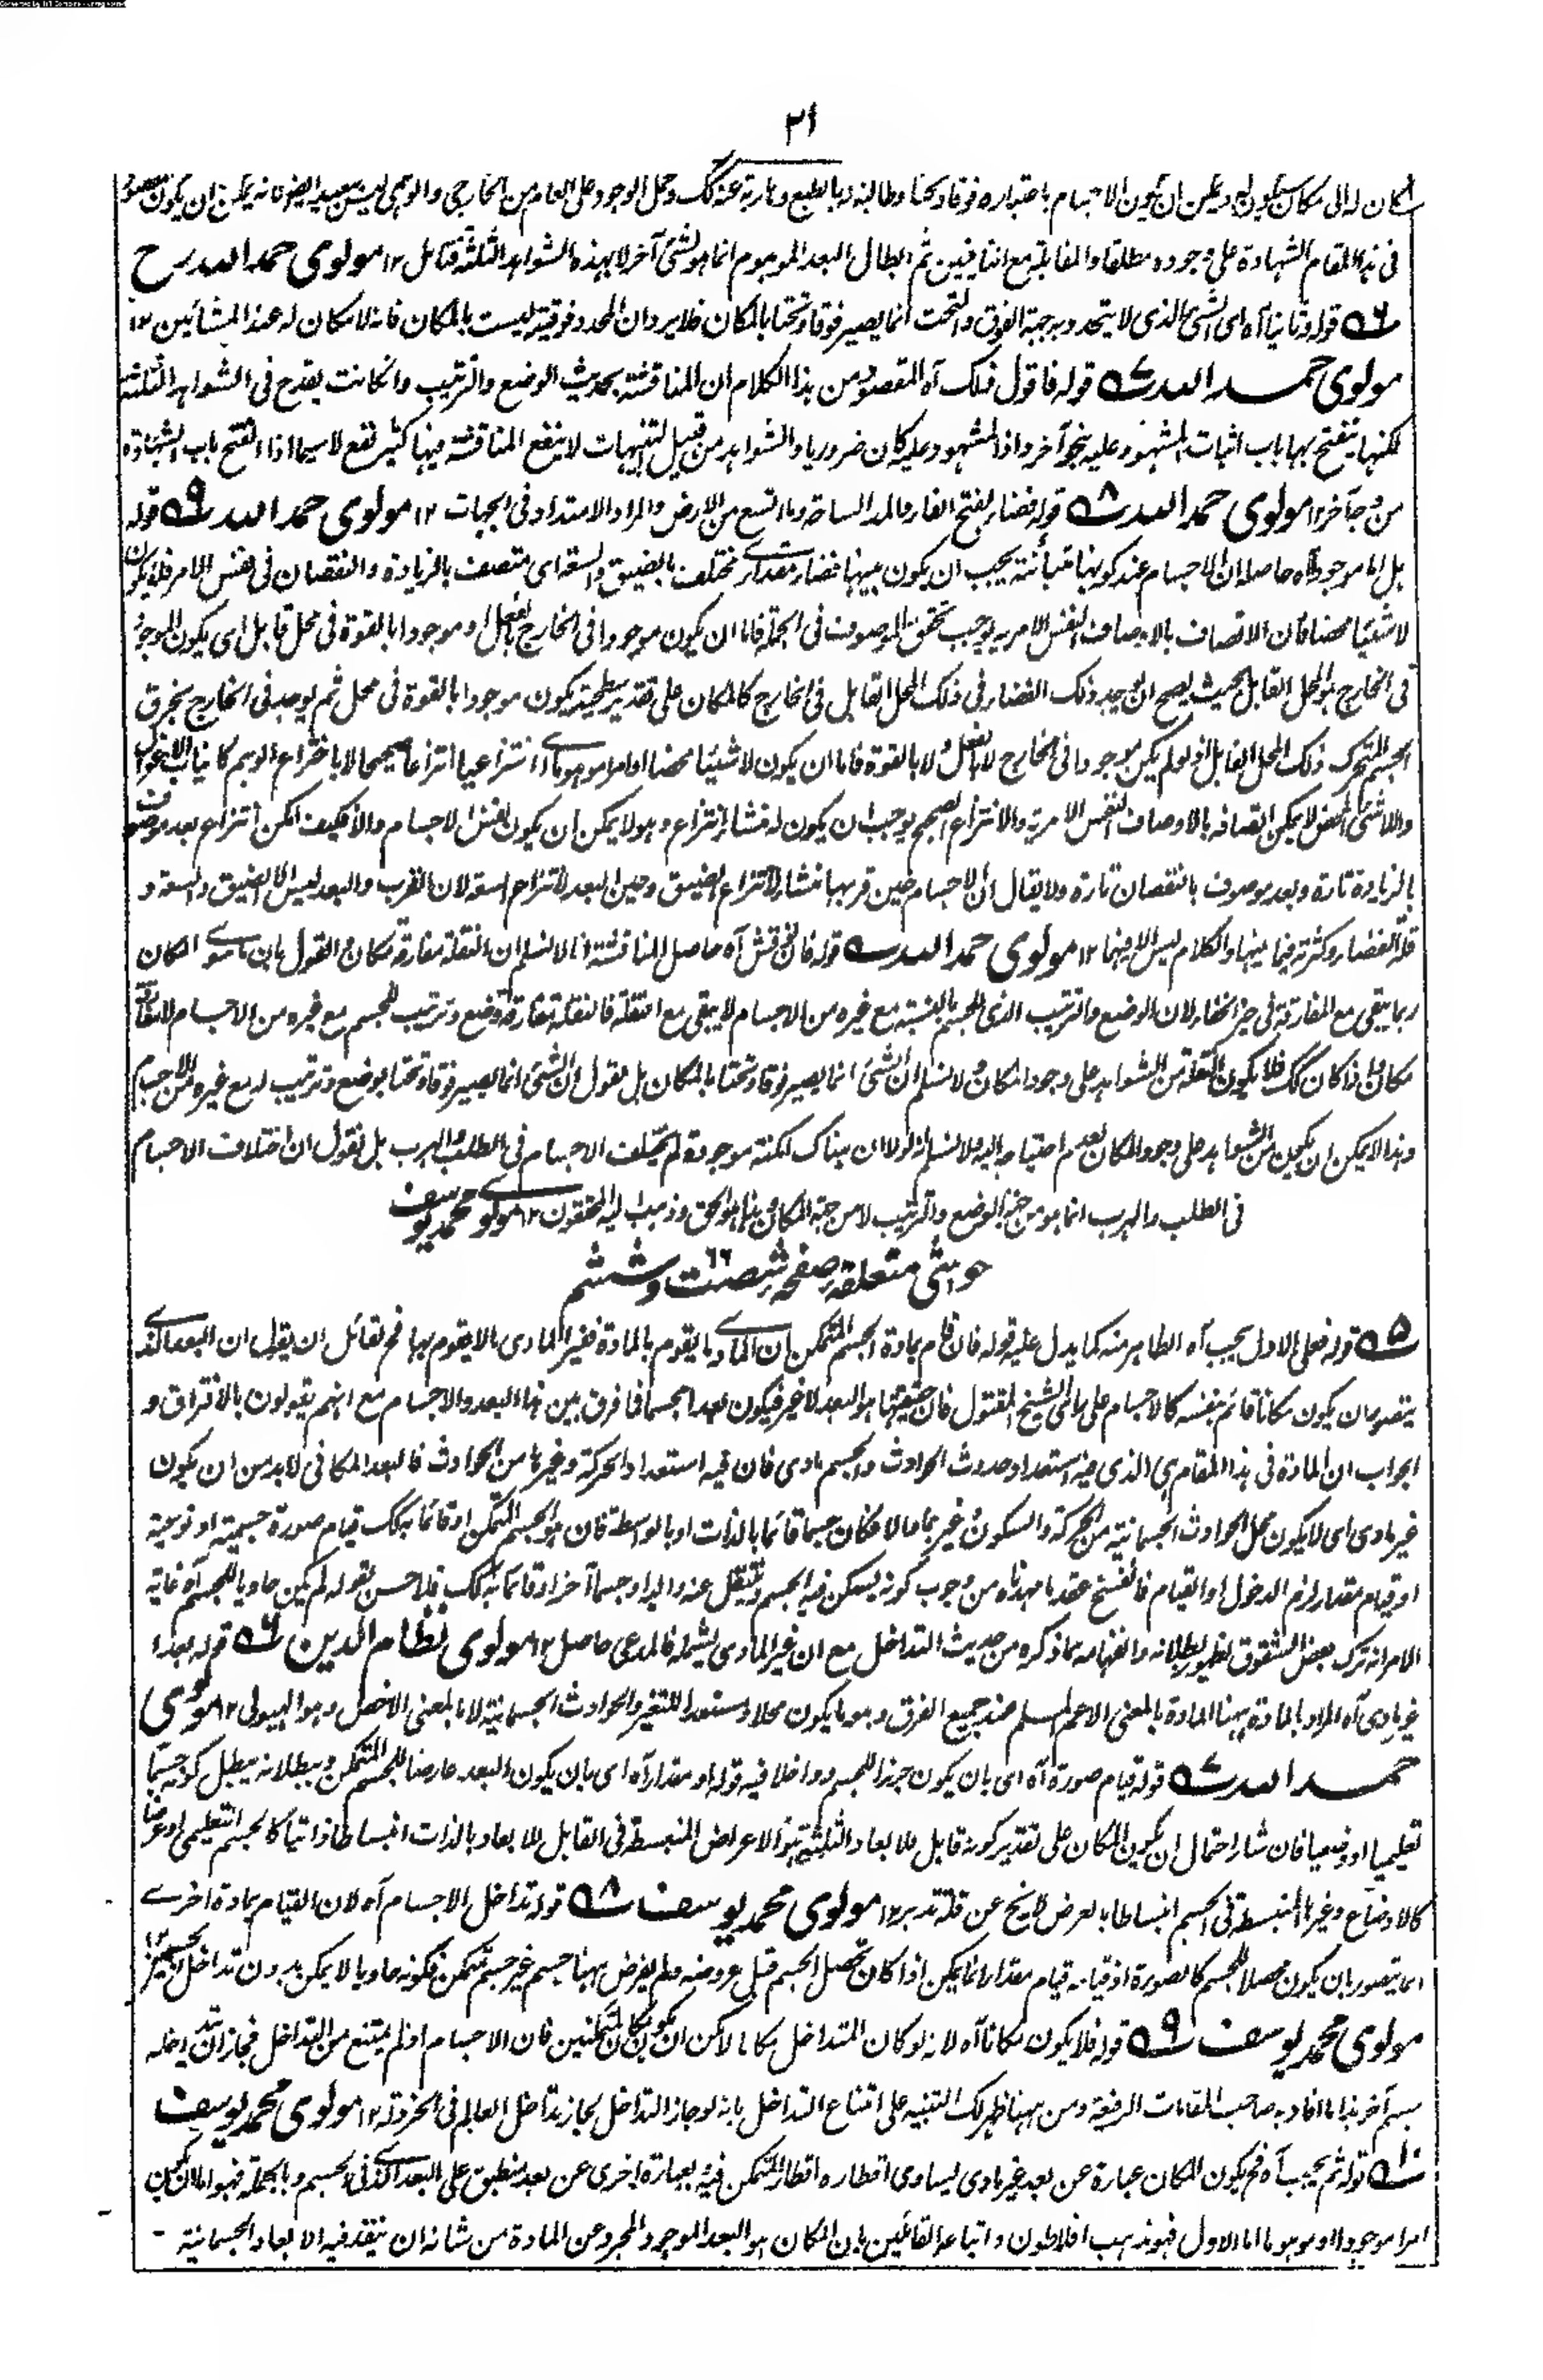 ۲۱
فی هذا المقام الشهادة علی وجوده مطلقا والمقابلة مع النافیین ثم ابطال البعد الموهوم انما هو لشئ آخر لا بهذه الشواهد الثلثة فتأمل ۱۲ مولوی حمد الله رح
۶ قوله وثانیا آه ای الشئ الذی لا یتحدد به جهة الفوق والتحت انما یصیر فوقا وتحتا بالمکان فلا یرد ان المحدد فوقیته لیست بالمکان فانه لا مکان له عند المشائین ۱۲
مولوی حمد الله ۷ قوله فاقول فلک آه المقصود من هذا الکلام ان المناقشة بحدیث الوضع والترتیب وان کانت یقدح فی الشواهد الثلثة
لکنها ینفتح بها باب اثبات المشهود علیه بنحو آخر واذا المشهود علیه کان ضروریا والشواهد من قبیل التنبیهات لا ینفع المناقشة فیها کثیر نفع لا سیما اذا انفتح باب الشهادة
من وجه آخر ۱۲ مولوی حمد الله ۸ قوله فضاء بفتح الفاء والمد الساحة وما اتسع من الارض والمراد الامتداد فی الجهات ۱۲ مولوی حمد الله ۹ قوله
بل اما موجود آه حاصله ان الاجسام عند کونها متبائنة یجب ان یکون بینها فضاء مقداری مختلف بالضیق والسعة ای متصف بالزیادة والنقصان فی نفس الامر فلا یکون
لا شیئا محضا فان الاتصاف بالاوصاف النفس الامریة یوجب تحقق الموصوف فی الجملة فاما ان یکون موجودا فی الخارج بالفعل او موجودا بالقوة فی محل قابل ای یکون الموجود
فی الخارج هو المحل القابل بحیث یصح ان یوجد ذلک الفضاء فی ذلک المحل القابل فی الخارج کالمکان علی تقدیر سطحیته یکون موجودا بالقوة فی محل ثم یوجد فی الخارج بخرق
الجسم المتحرک ذلک المحل القابل او لم یکن موجودا فی الخارج لا بالفعل ولا بالقوة فاما ان یکون لا شیئا محضا او امرا موهوما ای انتزاعیا انتزاعا صحیحا لا باختراع الوهم کانیاب الاغوال
واللا شئ المحض لا یمکن اتصافه بالاوصاف النفس الامریة والانتزاع الصحیح یوجب ان یکون له منشأ انتزاع وهو لا یمکن ان یکون نفس الاجسام والا فکیف یمکن انتزاع بعد موصوف
بالزیادة تارة وبعد موصوف بالنقصان تارة ولا یقال ان الاجسام حین قربها منشأ لانتزاع الضیق وحین البعد لانتزاع السعة لان القرب والبعد لیس الا الضیق والسعة و
قلة الفضاء وکثرته فیما بینها والکلام لیس الا فیها ۱۲ مولوی حمد الله قوله فان نوقش آه حاصل المناقشة انا لا نسلم ان النقلة مفارقة مکان والقول بان ما سوی المکان
ربما یبقی مع المفارقة فی حیز الخفاء لان الوضع والترتیب الذی للجسم بالنسبة مع غیره من الاجسام لا یبقی مع النقلة فالنقلة مفارقة وضع وترتیب للجسم مع غیره من الاجسام لا مفارقة
مکان واذا کان کک فلا یکون النقلة من الشواهد علی وجود المکان ولا نسلم ان الشئ انما یصیر فوقا وتحتا بالمکان بل نقول ان الشئ انما یصیر فوقا وتحتا بوضع وترتیب له مع غیره من الاجسام
وهذا لا یمکن ان یکون من الشواهد علی وجود المکان لعدم احتیاجه الیه ولا نسلم انه لولا ان هناک امکنة موجودة لم یختلف الاجسام فی الطلب والهرب بل نقول ان اختلاف الاجسام
فی الطلب والهرب انما هو من جهة الوضع والترتیب لا من جهة المکان وهذا هو الحق وذهب الیه المحققون ۱۲ مولوی محمد یوسف
حواشی متعلقه صفحه شصت و ششم ۶۶
۵ قوله فعلی الاول یجب آه الظاهر منه کما یدل علیه قوله فان قام بمادة الجسم المتمکن ان المادی ما یقوم بالمادة فغیر المادی ما لا یقوم بها فح لقائل ان یقول ان البعد الذی
یتصور ان یکون مکانا قائم بنفسه کالاجسام علی رای الشیخ المقتول فان حقیقتها هو البعد لا غیر فیکون بعد الجسم فما فرق بین هذا البعد والاجسام مع انهم یقولون بالافتراق و
الجواب ان المادة فی هذا المقام هی الذی فیه استعداد حدوث الحوادث والجسم مادی فان فیه استعداد الحرکة وغیرها من الحوادث فالبعد المکانی لا بد من ان یکون
غیر مادی ای لا یکون محل الحوادث الجسمانیة من الحرکة والسکون وغیرهما والا فکان جسما قائما بالذات او بالواسطة فان هو الجسم المتمکن او قائما به کک قیام صورة جسمیة او نوعیة
او قیام مقدار لزم الدخول او القیام فانفسخ عقد ما مهدناه من وجوب کونه یسکن فیه الجسم وینتقل عنه والیه او جسما آخر او قائما به کک فلا حسن لقوله لم یکن حاویا للجسم آه غایة
الامر انه ترک بعض الشقوق لظهور بطلانه وانفهامه مما ذکره من حدیث التداخل مع ان غیر المادی یشمله فالمدعی حاصل ۱۲ مولوی نظام الدین ۶ قوله بعدا
غیر مادی آه المراد بالمادة ههنا المادة بالمعنی الاعم المسلم عند جمیع الفرق وهو ما یکون محلا ومستعدا للتغیر والحوادث الجسمانیة لا ما بالمعنی الاخص وهو الهیولی ۱۲ مولوی
حمد الله ۷ قوله قیام صورة آه ای بان یکون جزء للجسم وداخلا فیه قوله او مقدار آه ای بان یکون البعد عارضا للجسم المتمکن وببطلانه یبطل کونه جسما
کالاوضاع وغیرها المنبسطة فی الجسم انبساطا بالعرض لا یخ عن قلة تدبر ۱۲ مولوی محمد یوسف ۸ قوله تداخل الاجسام آه لان القیام بمادة اخری
انما یتصور بان یکون محصلا للجسم کالصورة او قیامه قیام مقدار انما یمکن اذا کان تحصل الجسم قبل عروضه ولم یفرض ههنا جسم غیر جسم متمکن فکونه حاویا لا یمکن بدون تداخل الجسمین ۱۲
مولوی محمد یوسف ۹ قوله فلا یکون مکانا آه لانه لو کان المتداخل مکانا لامکن ان یکون مکان للمتمکنین فان الاجسام اذا لم یمتنع من التداخل فجاز ان یتداخله
جسم آخر هذا ما افاد به صاحب المقامات الرفیعة ومن ههنا ظهر لک التنبیه علی امتناع التداخل بانه لو جاز التداخل لجاز تداخل العالم فی الخردلة ۱۲ مولوی محمد یوسف
۱۰ قوله ثم یجب آه فح یکون المکان عبارة عن بعد غیر مادی یساوی اقطاره اقطار المتمکن فیه وبعبارة اخری عن بعد منطبق علی البعد الذی فی الجسم وبالجملة فهو اما ان یکون
امرا موجودا او موهوما اما الاول فهو مذهب افلاطون واتباعه القائلین بان المکان هو البعد الموجود المجرد عن المادة من شانه ان ینفذ فیه الابعاد الجسمانیة -